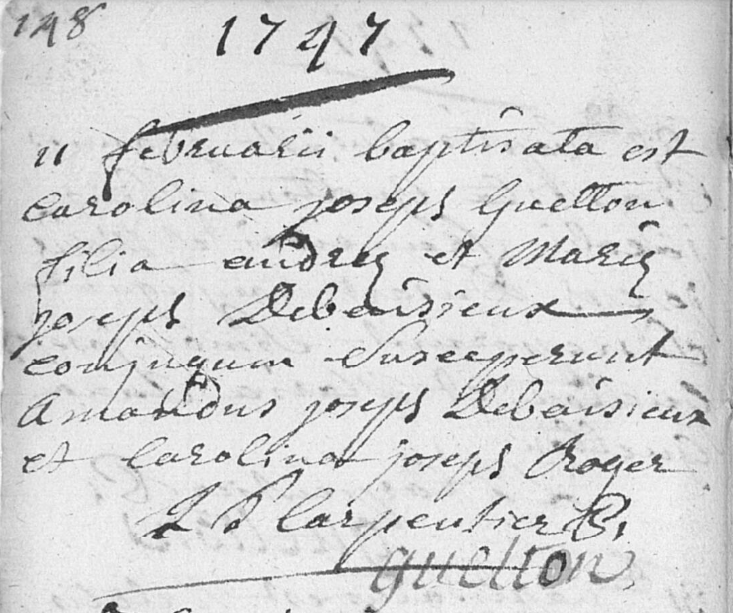 148
1747
11 februarii baptisata est
carolina joseph Guelton
filia andreę et Marię
joseph Debaisieux
conjugum Susceperunt
Amandus joseph Debaisieux
et Carolina joseph Roger
Carpentier
guelton